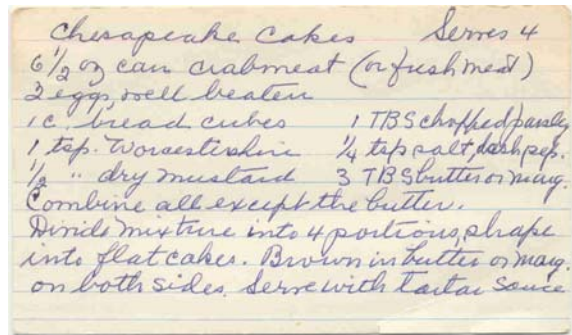 Chesapeake Cakes Serves 4
6 1/2 oz can crabmeat (or fresh meat)
2 eggs, well beaten
1 c. bread cubes 1 TBS chopped parsley
1 tsp. Worcestershire 1/4 tsp salt, dash pep.
1/2 " dry mustard 3 TBS butter or marg.
Combine all except the butter.
Divide mixture into 4 portions, shape
into flat cakes. Brown in butter or marg.
on both sides. Serve with tartar sauce